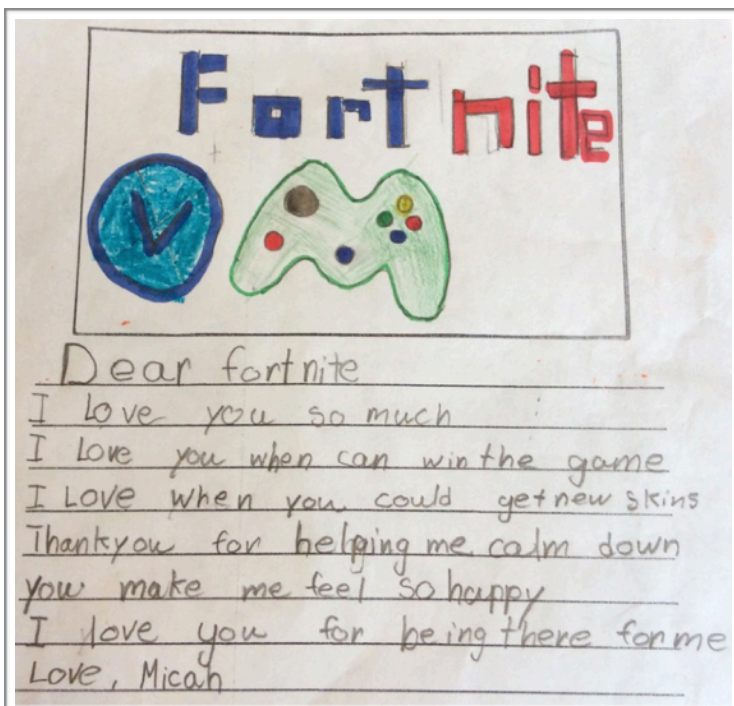 Fortnite
V
Dear fortnite
I Love you so much
I Love you when can win the game
I Love when you could get new skins
Thankyou for helping me calm down
you make me feel so happy
I love you for being there for me
Love, Micah